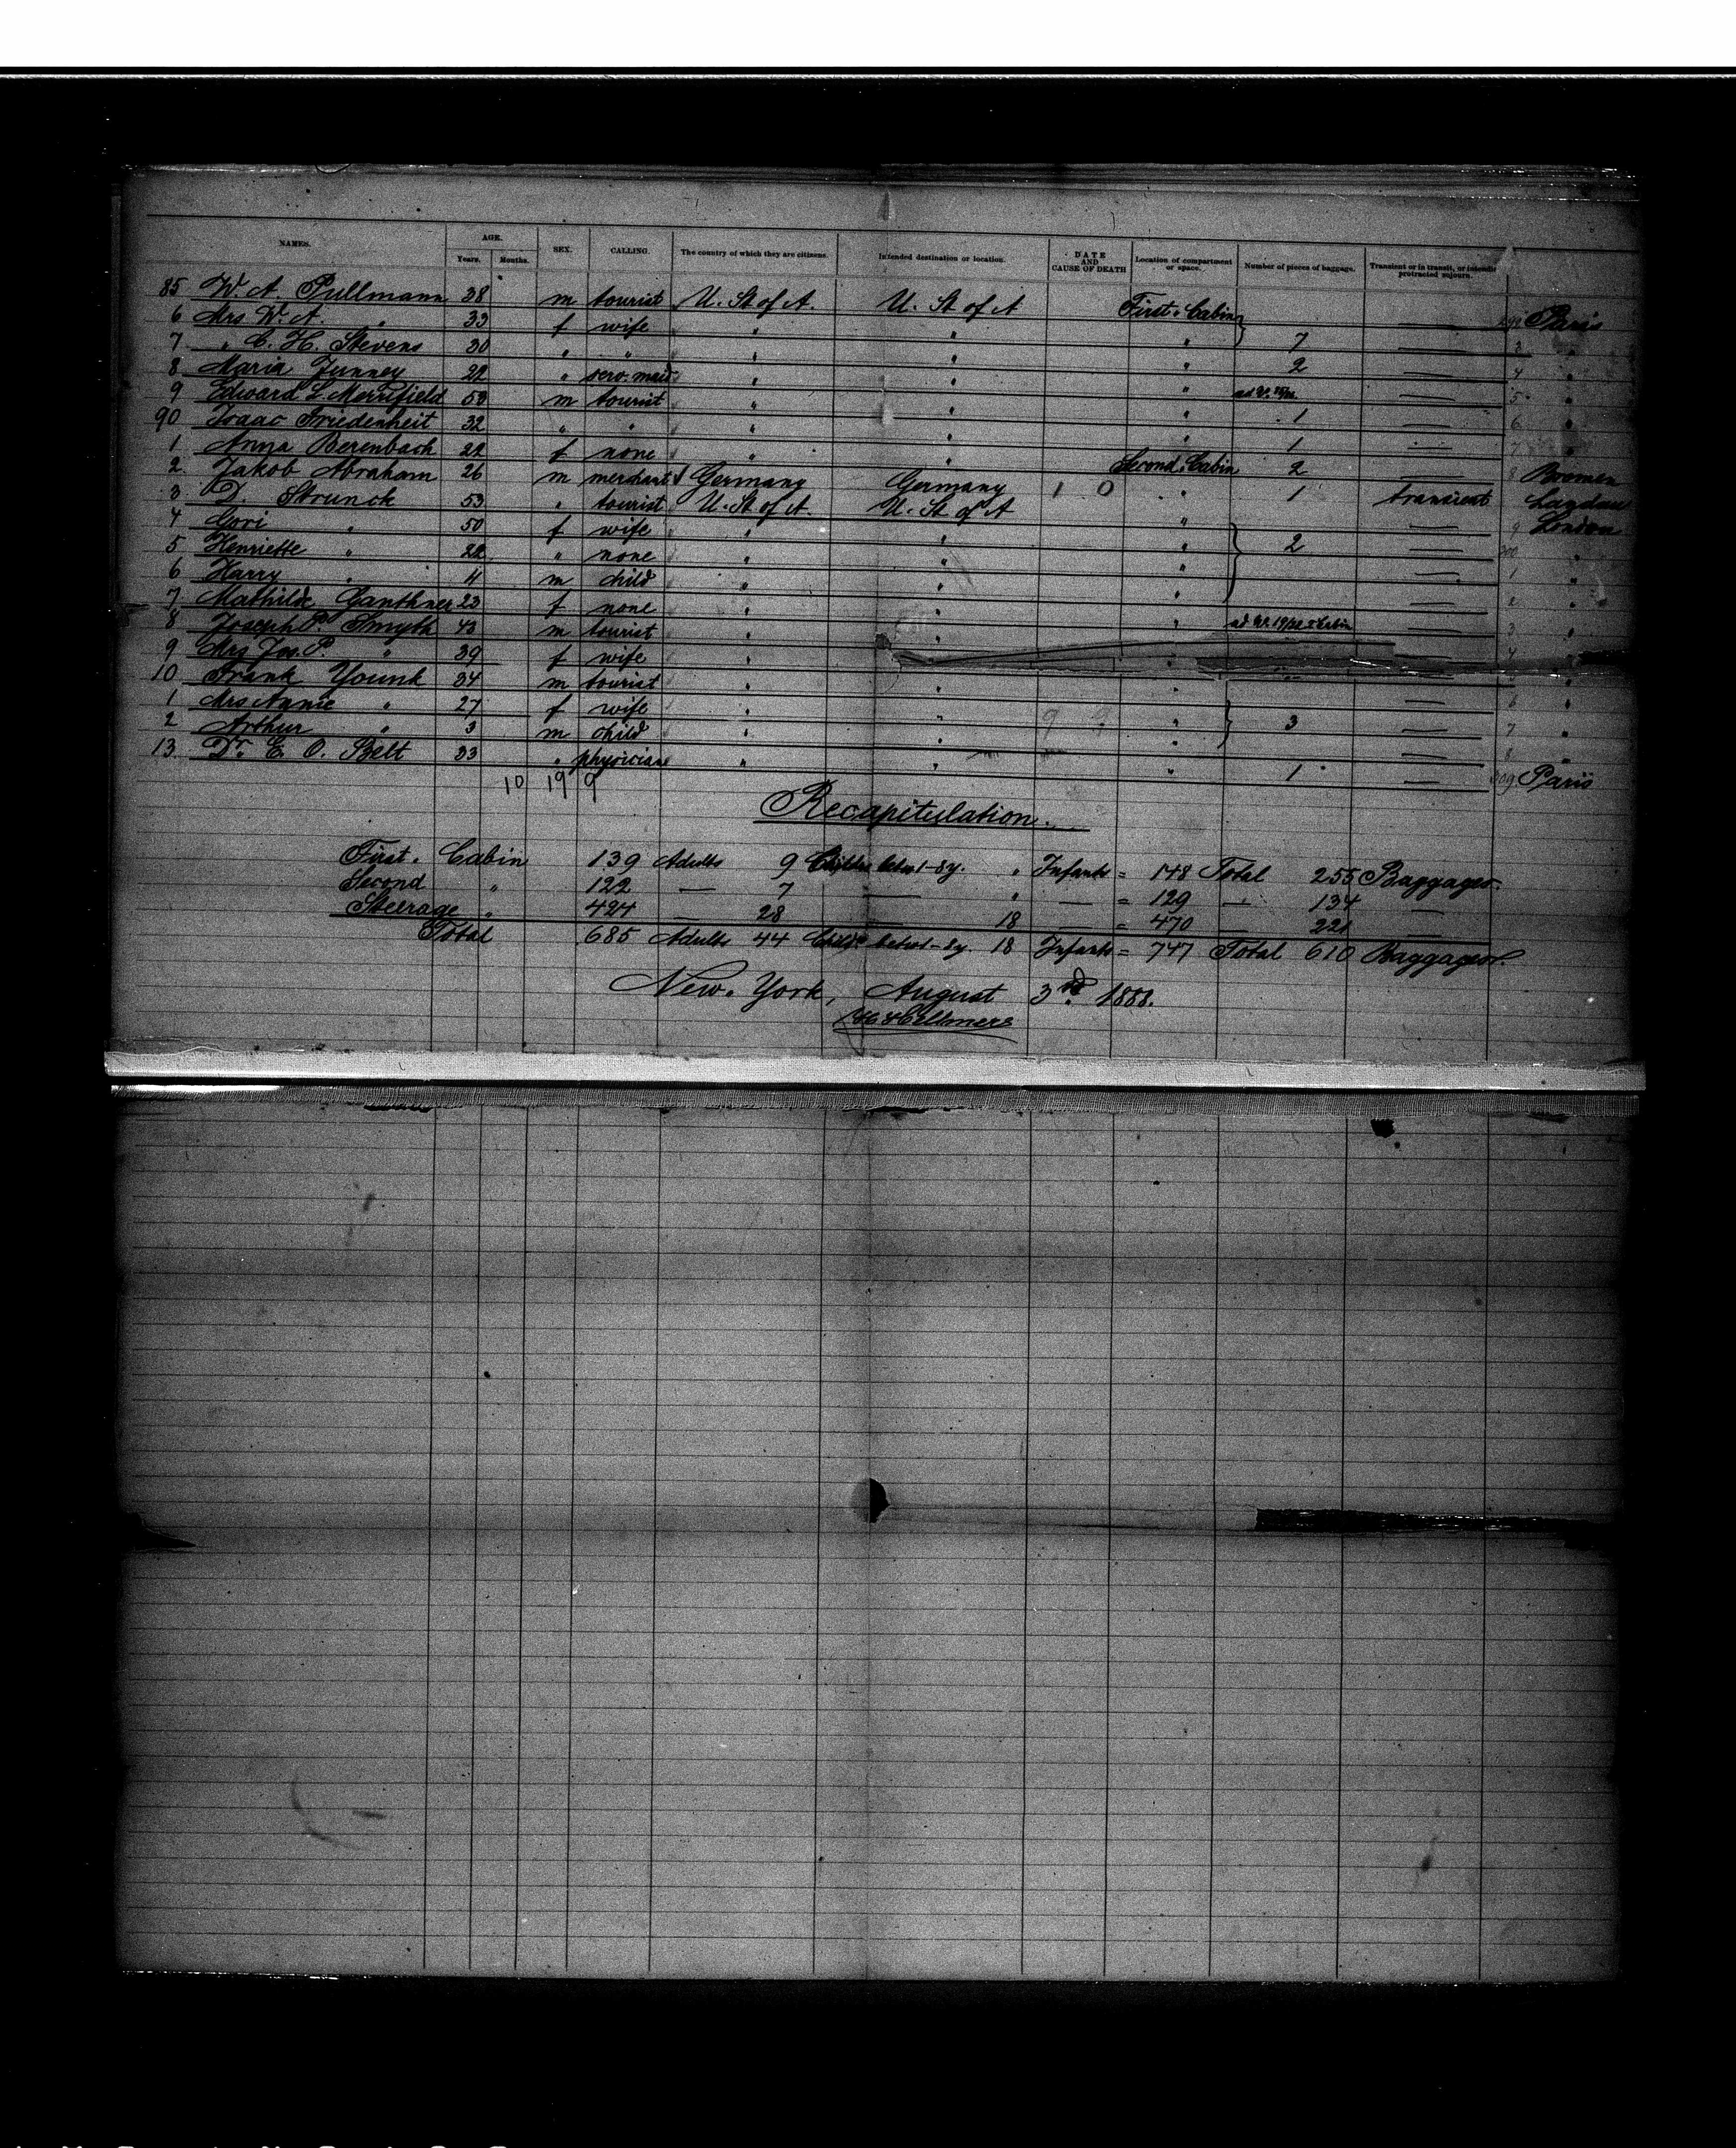 NAMES. AGE. SEX. CALLING. The country of which they are citizens. Intended destination or location. DATE AND CAUSE OF DEATH Location of compartment or space. Number of pieces of baggage. Transient or in transit, or intended protracted sojourn.
Years. Months.
85 W. A. Pullmann 38 m tourist U. St of A. U. St of A First Cabin — Paris
6 Mrs W. A. " 33 f wife " " " 7 — 3 "
7 " C. H. Stevens 30 " " " " " 2 — 4 "
8 Maria 22 " serv. maid " " " — 5 "
9 Edward L. Merrifield 53 m tourist " " " 1 — 6 "
90 Isaac Friedenheit 32 " " " " " 1 — 7 "
1 Anna Berenbach 22 f none " " Second Cabin 2 — 8 Bremen
2 Jakob Abraham 26 m merchant Germany Germany 1 0 " 1 transient Landau
3 D. Strunck 53 " tourist U. St of A. U. St of A " — 9 London
4 " 50 f wife " " " 2 — 200 "
5 Henriette " 22 " none " " " — 1 "
6 Harry " 4 m child " " " — 2 "
7 Mathilde Ganthner 23 f none " " " — 3 "
8 Joseph P. Smyth 43 m tourist " " " — 4 "
9 Mrs Jos. P. " 39 f wife " " "
10 Frank Younk 34 m tourist " " " — 6 "
1 Mrs Annie " 27 f wife " " " 3 — 7 "
2 Arthur " 3 m child " " " — 8 "
13 Dr. E. O. Belt 33 " physician " " " 1 — 209 Paris
10 19 9
Recapitulation.
First Cabin 139 Adults 9 Children betw 1-8 y. " Infants = 148 Total 255 Baggages.
Second " 122 — 7 — " — = 129 — 134 —
Steerage " 424 — 28 — 18 — = 470 — 221 —
Total 685 Adults 44 Childr betw 1-8 y. 18 Infants = 747 Total 610 Baggages.
New York, August 3rd 1888.